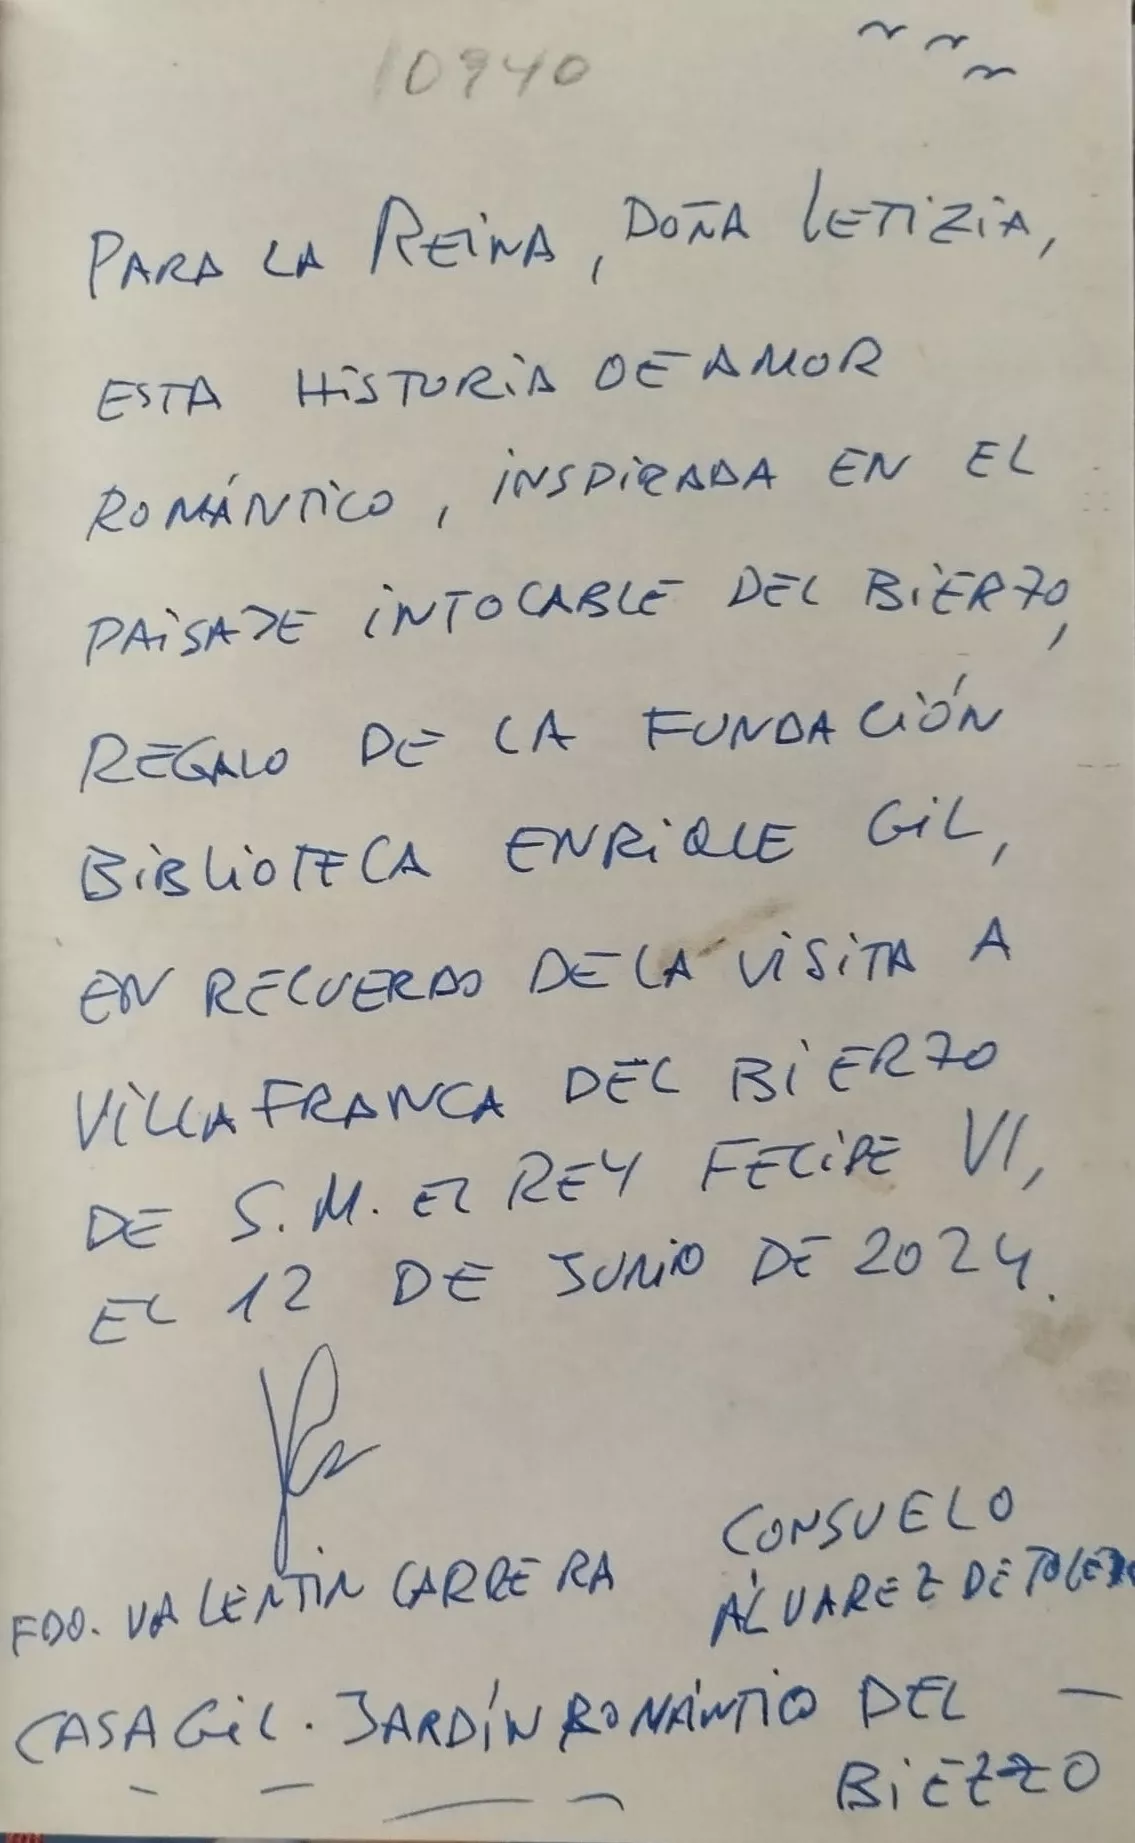 10940
PARA LA REINA, DOÑA LETIZIA,
ESTA HISTORIA DE AMOR
ROMÁNTICO, INSPIRADA EN EL
PAISAJE INTOCABLE DEL BIERZO,
REGALO DE LA FUNDACIÓN
BIBLIOTECA ENRIQUE GIL,
EN RECUERDO DE LA VISITA A
VILLAFRANCA DEL BIERZO
DE S.M. EL REY FELIPE VI,
EL 12 DE JUNIO DE 2024.
FDO. VALENTIN CARRERA
CONSUELO
ÁLVAREZ DE TOLEDO
CASA GIL. JARDÍN ROMÁNTICO DEL
BIEZZO